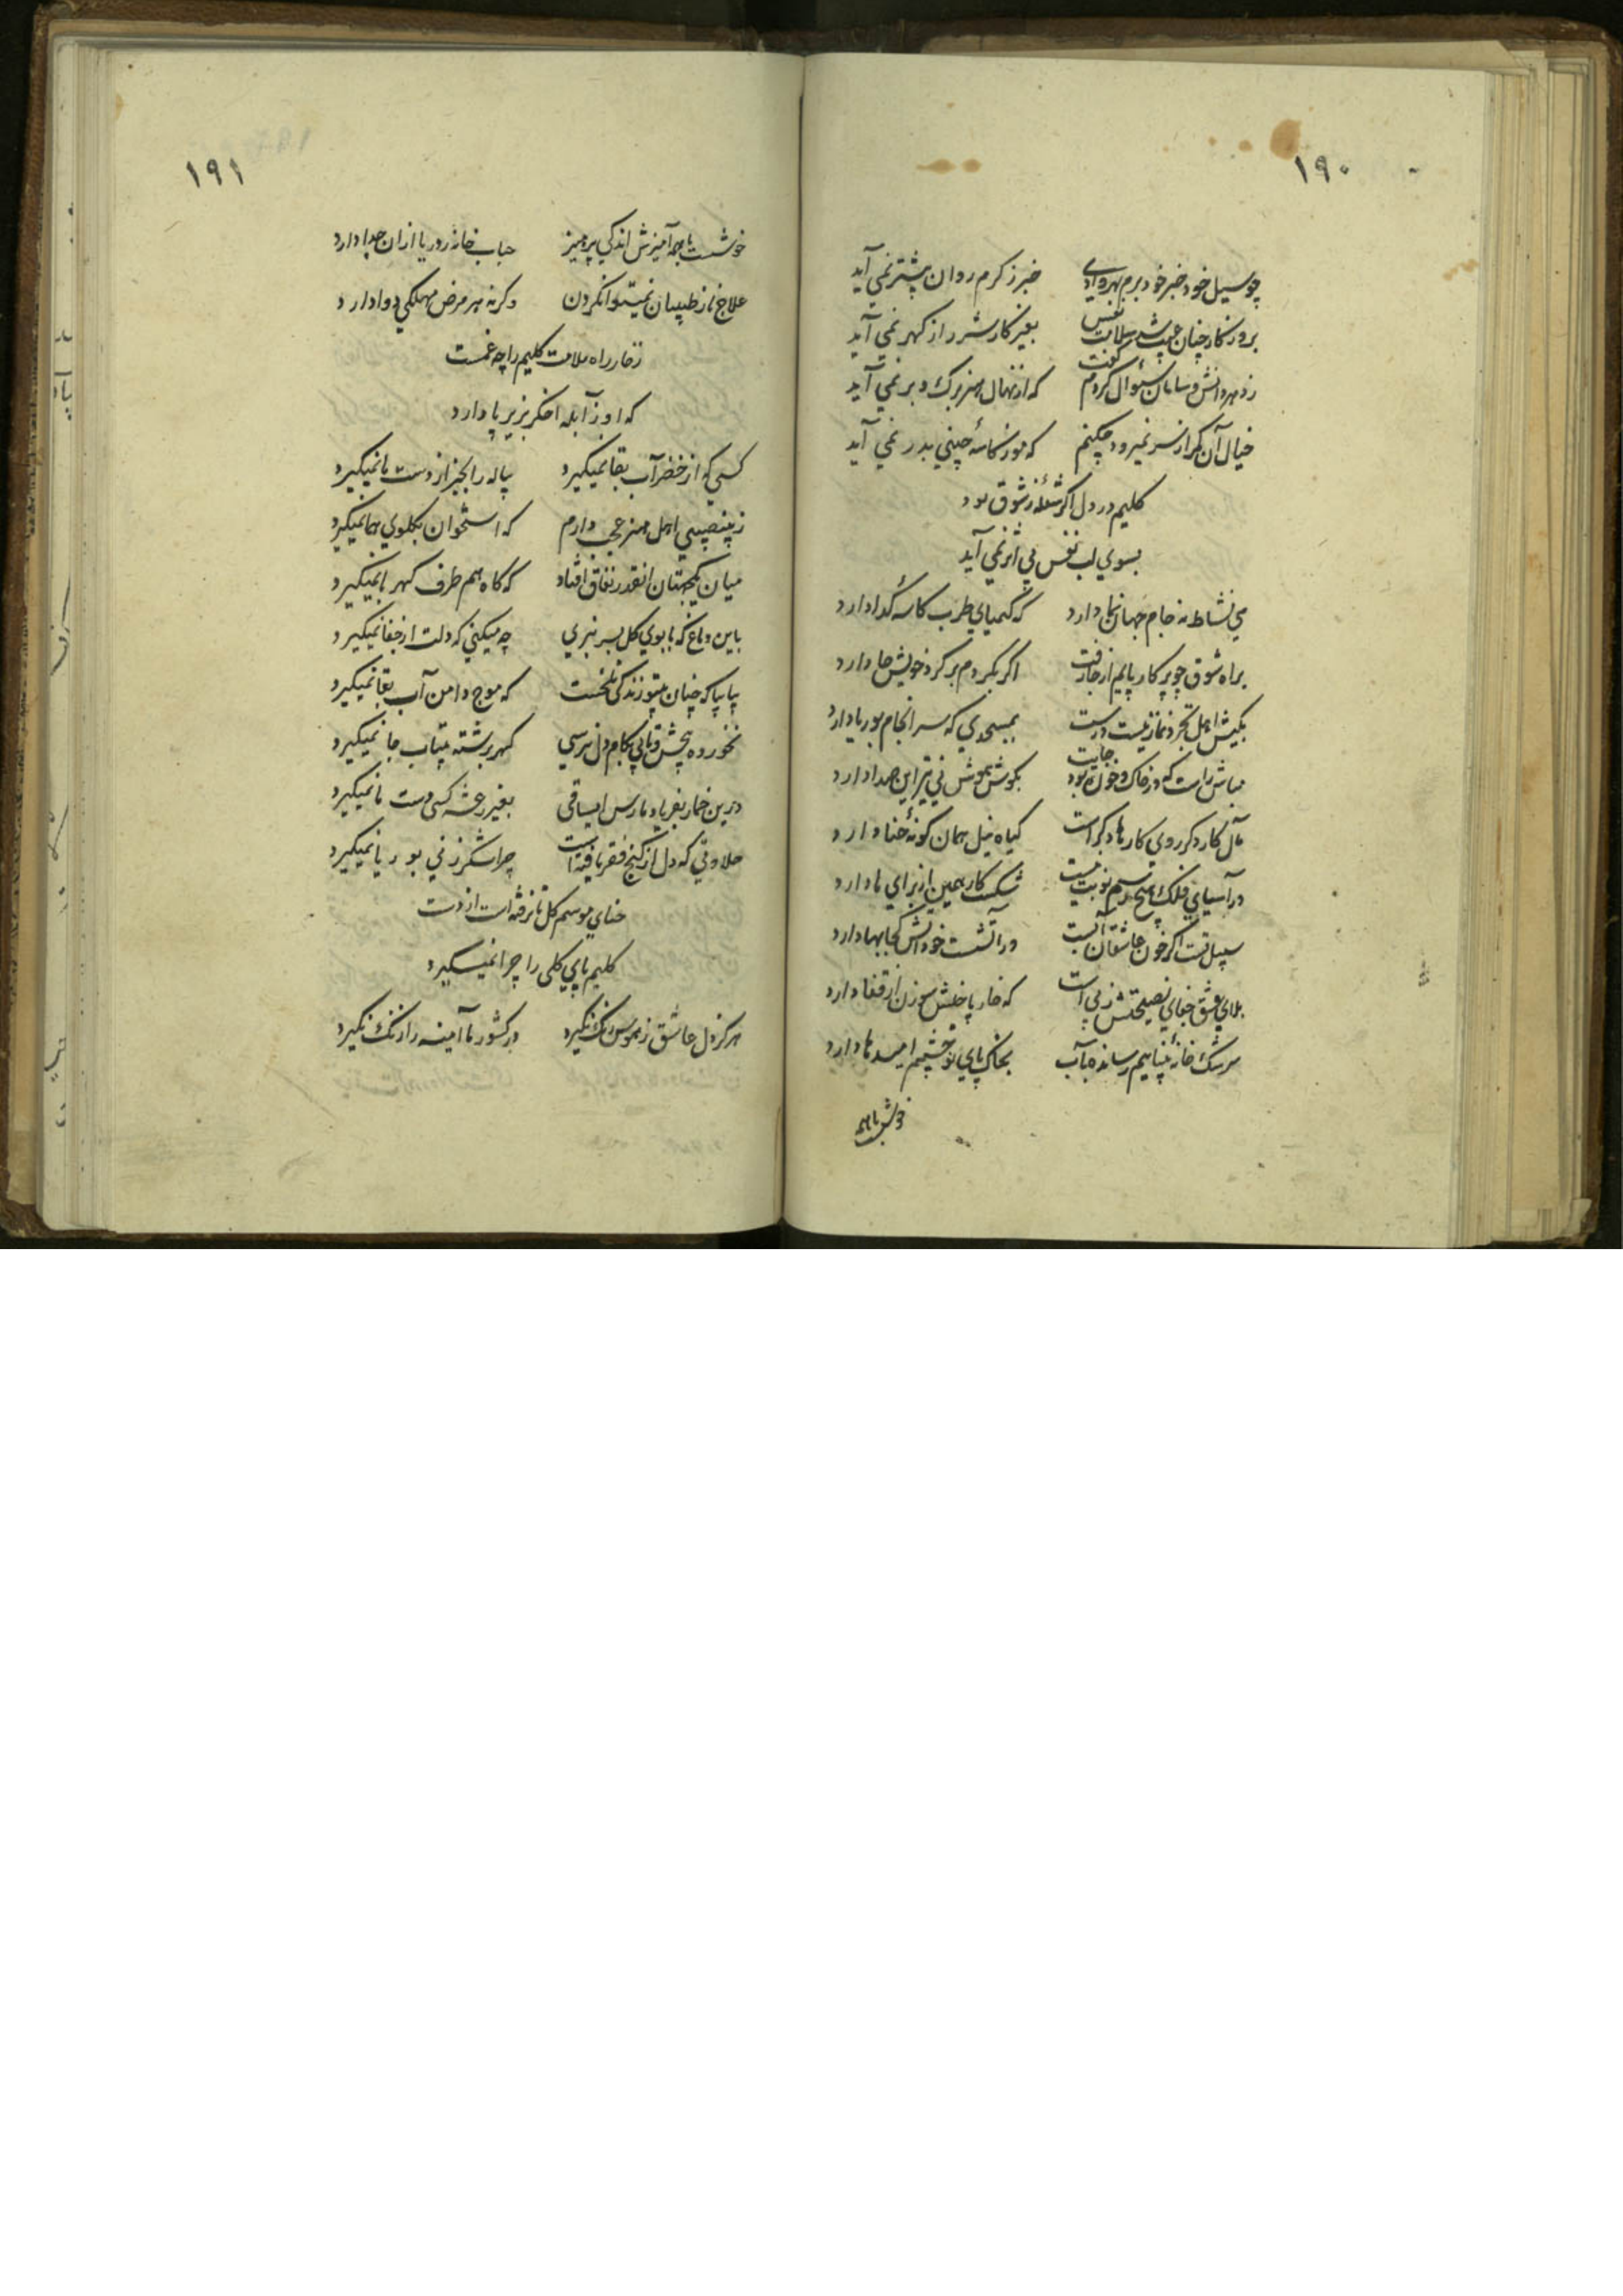 ۱۹۰
چو سیل خود خبر خود برم بهر وادی خبر ز کرم روان پیشتر نمی آید
بروزکار چنان عیب شد سلامت نفس بغیر کار شرر از کهر نمی آید
ز دانش و سامان سئوال کردم گفت که از نهال هنر برک و بر نمی آید
خیال آن کمر از سر نمیرود چکنم که مور کاسهٔ چینی بدر نمی آید
کلیم در دل اکر شعلهٔ ز شوق بود
بسوی لب نفس بی اثر نمی آید
می نشاط نه جام جهان نما دارد که کیمیای طرب کاسه کدا دارد
براه شوق چو پرکار پایم از جا رفت اکر بکردم بر کرد خویش جا دارد
بکیش اهل تجرد نماز نیست درست بمسجدی که سرانجام بوریا دارد
مباش راست که در خاک و خون بود جایت بکوش هوش نی تیر این صدا دارد
مآل کار دکر روی کارها دکر است کیاه نیل همان کونهٔ حنا دارد
در آسیای فلک هیچ رسم نوبت نیست شکست کار همین از برای ما دارد
سبیل تست اکر خون عاشقان آبست در آتشست خود آتش کجا بها دارد
بلای عشق جفای نصیحتش ز پی است که خار پا خلش سوزن از قفا دارد
سرشک خانهٔ بینائیم رسانده بآب بخاک پای تو چشمم امیدها دارد
خوشست با همه
۱۹۱
خوشست با همه آمیزش اندکی پرهیز حباب خانه ز دریا ازان جدا دارد
علاج ناز طبیبان نمیتوان کردن وکرنه هر مرض مهلکی دوا دارد
ز خار راه ملامت کلیم را چه غمست
که او ز آبله اخکر بزیر پا دارد
کسی که از خضر آب بقا نمیکیرد پیاله را بجز از دست ما نمیکیرد
ز بینصیبی اهل هنر عجب دارم که استخوان بکلوی هما نمیکیرد
میان یکجهتان انقدر نفاق افتاد که کاه هم طرف کهربا نمیکیرد
باین دماغ که با بوی کل بسر نبری چه میکنی که دلت از جفا نمیکیرد
بیا بیا که چنان بیتو زندکی تلخست که موج دامن آب بقا نمیکیرد
نخورده پیچش و تابی بکام دل نرسی کهر برشته بیتاب جا نمیکیرد
درین خمار بفریاد ما رس ای ساقی بغیر رعشه کسی دست ما نمیکیرد
حلاوتی که دل از کنج فقر یافته است چرا شکر ز نی بوریا نمیکیرد
حنای موسم کل تا نرفته است از دست
کلیم پای کلی را چرا نمیکیرد
هرکز دل عاشق ز هوس رنک نکیرد در کشور ما آینه را زنک نکیرد